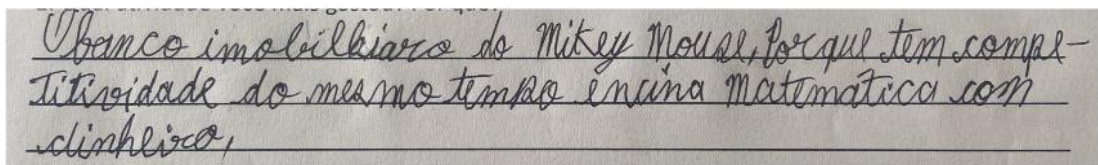 O banco imobilhiaro do Mikey Mouse, Porque tem compe-
titividade do mesmo tempo encina matematica com
dinheiro,